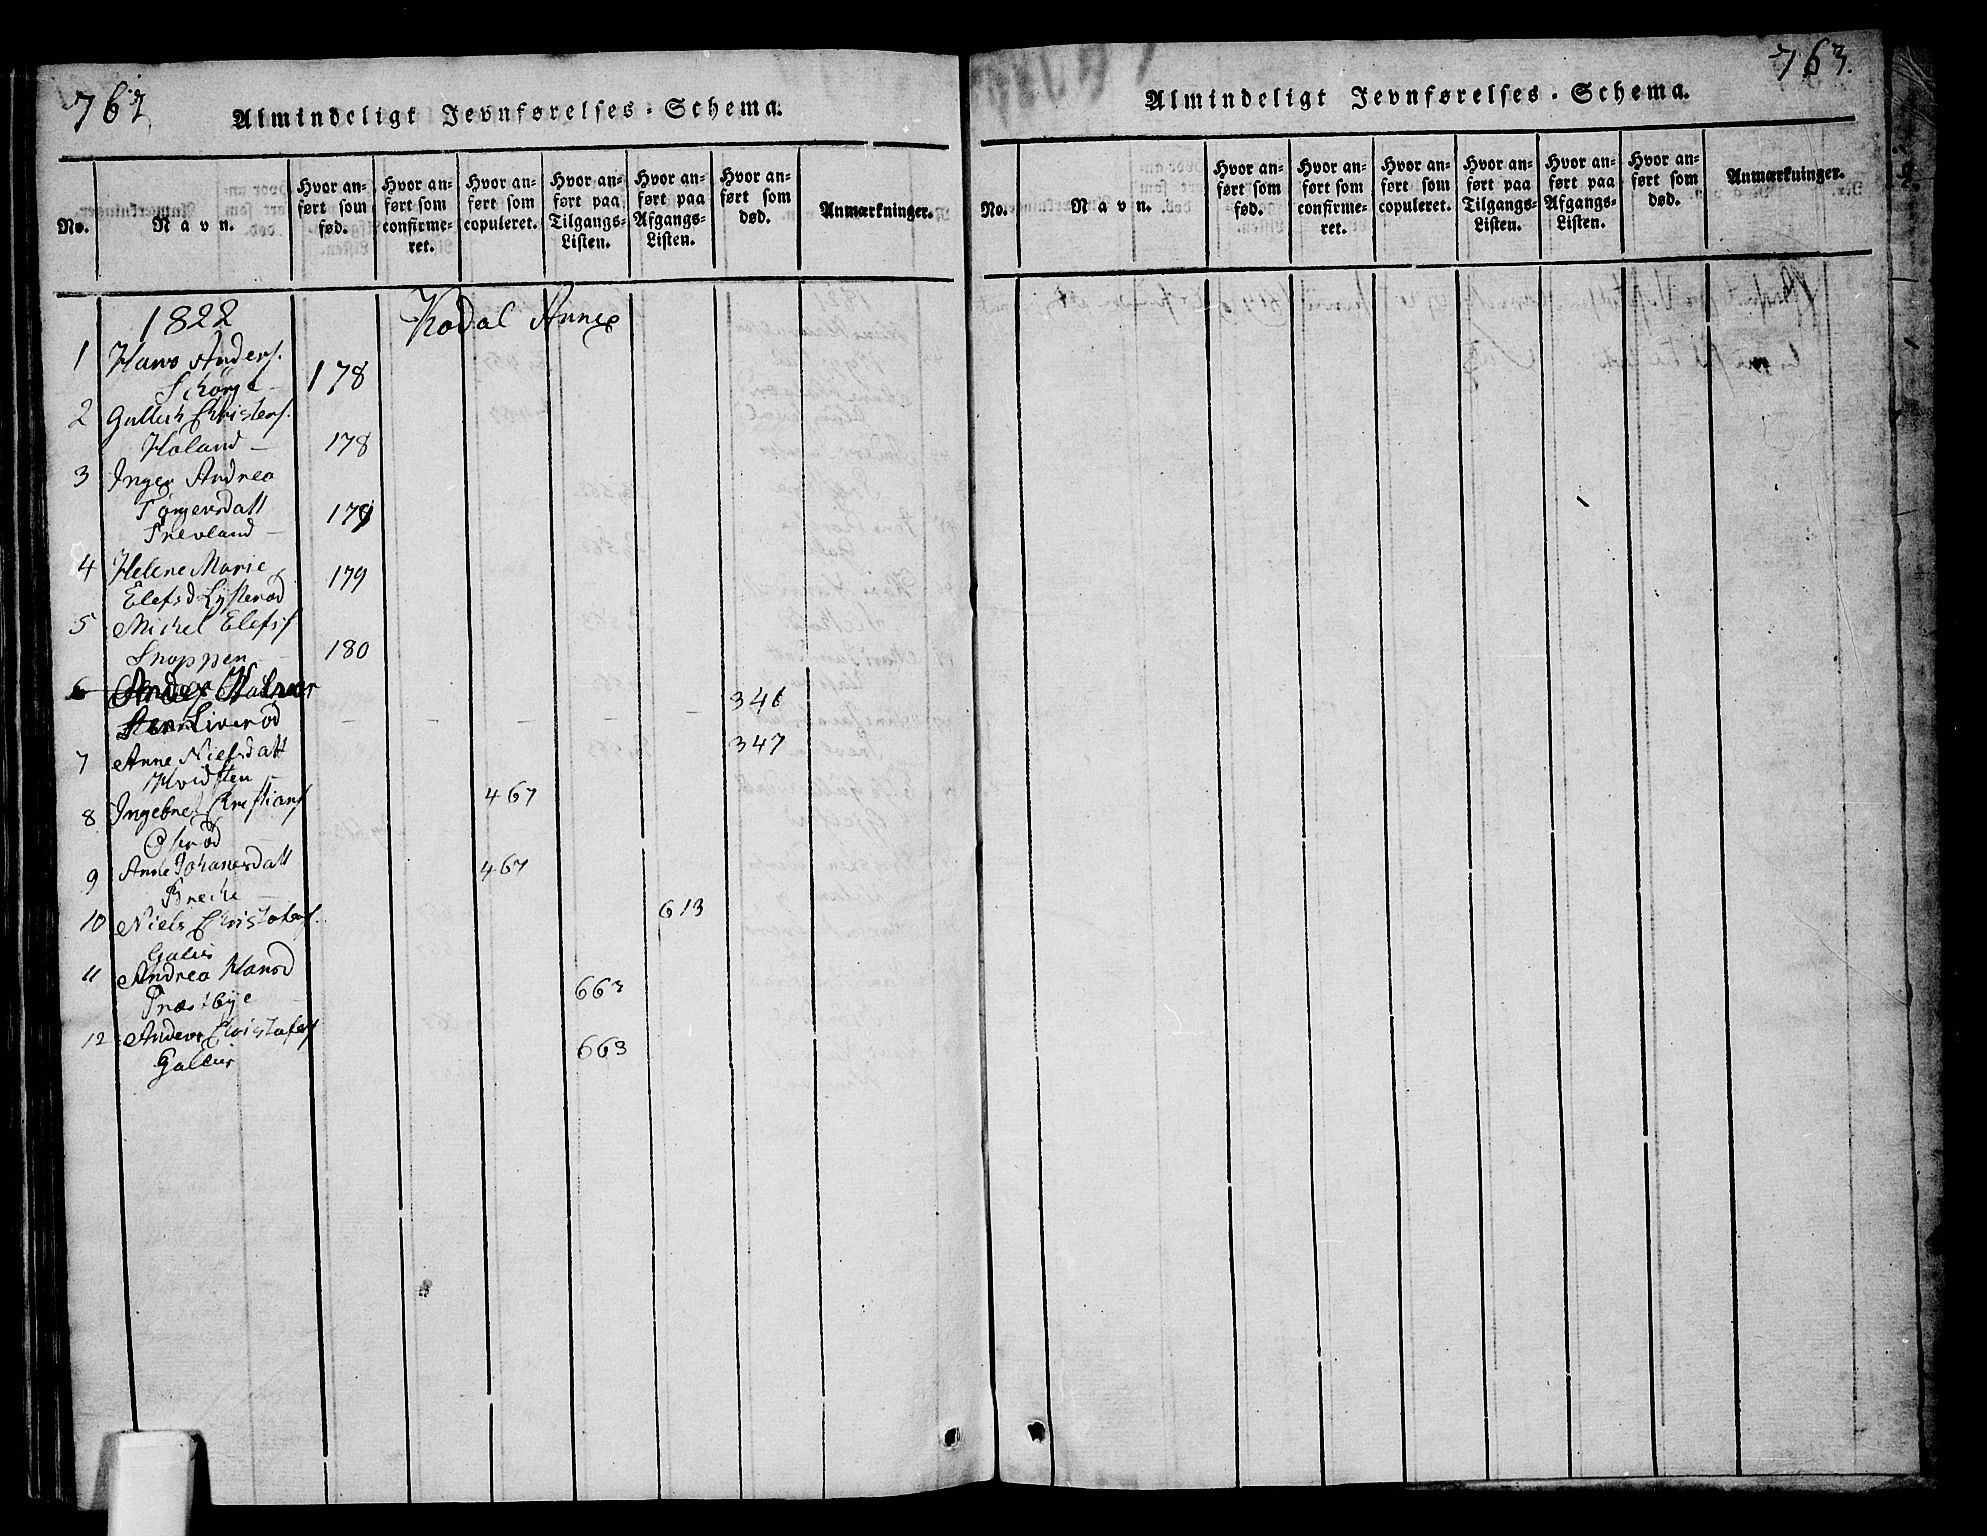 762.
Almindeligt Jevnførelses-Schema.
No.
Navn.
Hvor an-
ført som
fød.
Hvor an-
ført som
confirme-
ret.
Hvor an-
ført som
copuleret.
Hvor an-
ført paa
Tilgangs-
Listen.
Hvor an-
ført paa
Afgangs-
Listen.
Hvor an-
ført som
død.
Anmærkninger.
1822 Kodal Annex
1 Hans Anders.
178
2 Christens.
Holand - 178
3 Inger Andrea
Torgersdatt 179
Trevland -
4 Helene Marie 179
Elefsd Lysterød
5 Michel Elefss
Snappen - 180
6 Anders 346
Liverød
7 Anne Nielsdatt 347
Hvidsten
8 Ingebret Christians 467
Oserød
9 Anne Johanesdatt 467
Breche -
10 Niels Christofers. 613
Galiis
11 Andrea Hansd 663
Præstbye -
12 Anders Christofers 663
Galiis
763.
Almindeligt Jevnførelses-Schema.
No.
Navn.
Hvor an-
ført som
fød.
Hvor an-
ført som
confirme-
ret.
Hvor an-
ført som
copuleret.
Hvor an-
ført paa
Tilgangs-
Listen.
Hvor an-
ført paa
Afgangs-
Listen.
Hvor an-
ført som
død.
Anmærkninger.